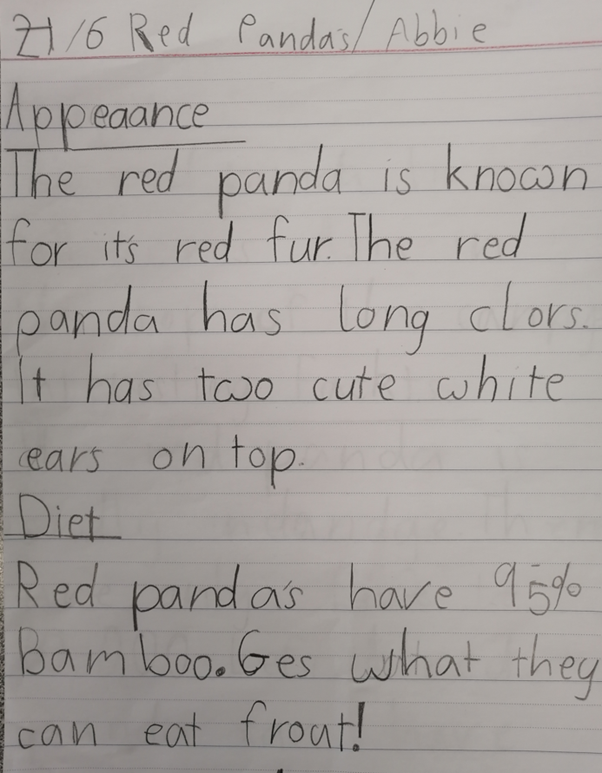 21/6 Red Panda's/ Abbie
Appeaance
The red panda is known
for it's red fur. The red
panda has long clors.
It has two cute white
ears on top.
Diet
Red panda's have 95%
Bamboo. Ges what they
can eat frout!